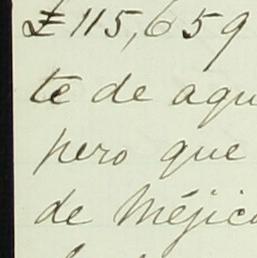 ₤115,659
te de aqu
pero que
de Méjic